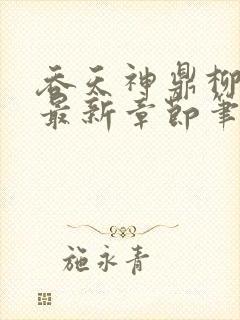 吞天神鼎柳
最新章节笔
施永青